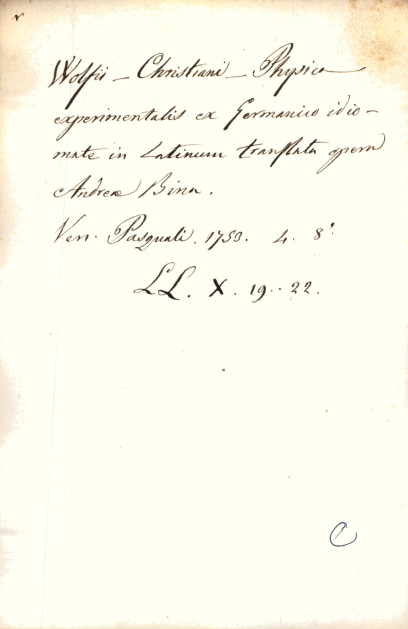 Wolfii – Christiani – Physica
experimentalis ex Germanico idio-
mate in Latinum translata opera
Andreæ Bina.
Ven. Pasquali. 1753. 4. 8°.
LL. X. 19.. 22.
C